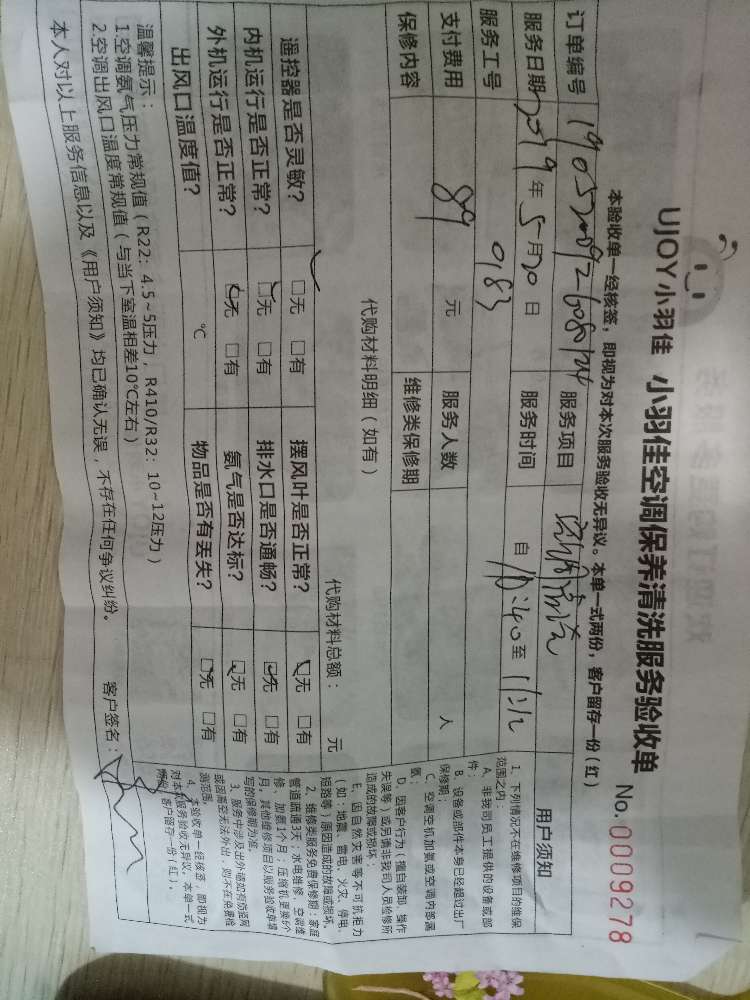 UJOY小羽佳 小羽佳空调保养清洗服务验收单 No.0009278
本验收单一经核签，即视为对本次服务验收无异议。本单一式两份，客户留存一份（红）
订单编号 服务项目
服务日期 2019年5月20日 服务时间 自10:40至11:12
服务工号 0183
支付费用 89 元 服务人数 人
保修内容 维修类保修期
代购材料明细（如有） 代购材料总额： 元
遥控器是否灵敏？ □无 □有 摆风叶是否正常？ □无 □有
内机运行是否正常？ □无 □有 排水口是否通畅？ □无 □有
外机运行是否正常？ □无 □有 氨气是否达标？ □无 □有
出风口温度值？ ℃ 物品是否有丢失？ □无 □有
温馨提示：
1.空调氨气压力常规值（R22：4.5~5压力，R410/R32：10~12压力）
2.空调出风口温度常规值（与当下室温相差10℃左右）
本人对以上服务信息以及《用户须知》均已确认无误，不存在任何争议纠纷。 客户签名：
用户须知
1、下列情况不在维修项目的维保
范围之内：
A、非我司员工提供的设备或部
件；
B、设备或部件本身已经超过出厂
保修期；
C、空调空机加氨或空调内部漏
氨；
D、因客户行为（擅自装卸、操作
失误等）或另请非我司人员检修所
造成的故障或损坏；
E、因自然灾害等不可抗拒力
（如：地震、雷电、火灾、停电、
短路等）原因造成的故障或损坏。
2、维修类服务免费保修期：家庭
管道疏通3天；水电维修、空调维
修、加氨1个月；压缩机更换6个
月，其他维修项目以服务验收单填
写的保修期为准。
3、服务中涉及出外墙如有防盗网
或因高空无法外出，则不在免费检
测范围。
4、本验收单一经核签，即视为
对本次服务验收无异议，本单一式
两份，客户留存一份（红）。